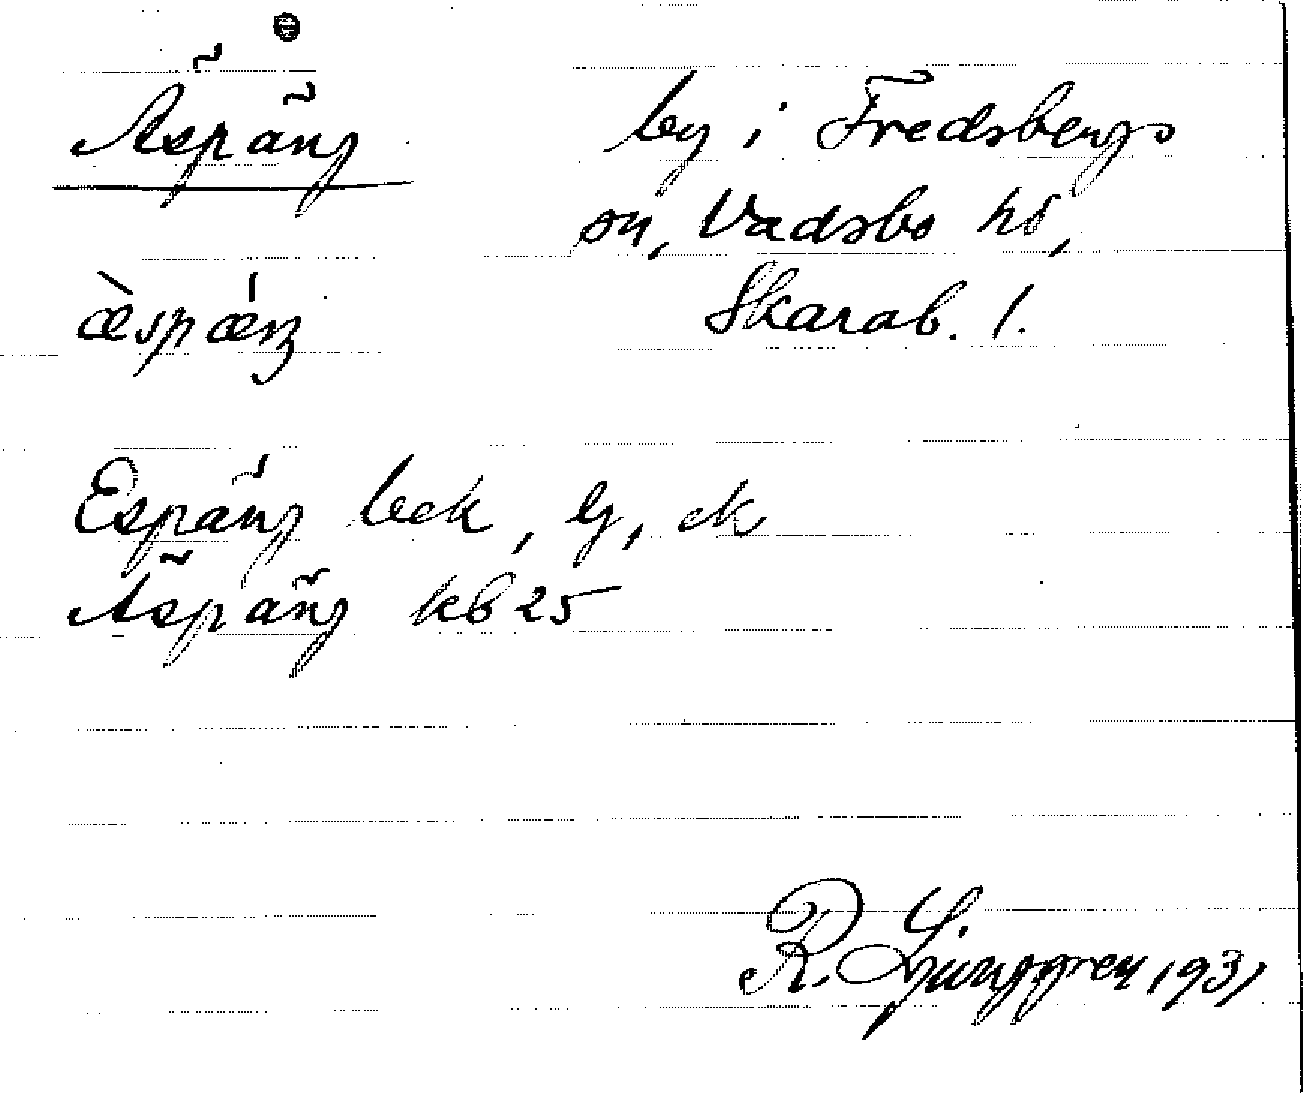 Äspäng by i Fredsbergs
sn, Vadsbo hd,
æ̀spǽŋ Skarab. l.
Espäng bek, lg, ek
Äspäng kb 25
R. Ljunggren 1931